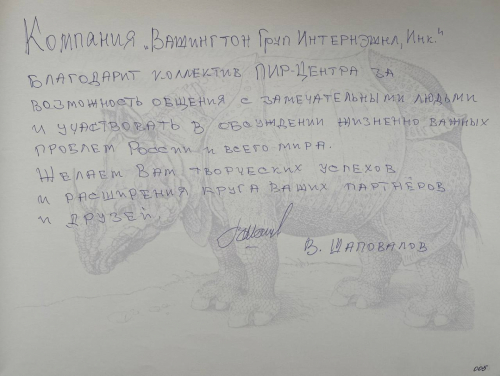 Компания „Вашингтон Груп Интернэшнл, Инк."
благодарит коллектив ПИР-Центра за
возможность общения с замечательными людьми
и участвовать в обсуждении жизненно важных
проблем России и всего мира.
Желаем Вам творческих успехов
и расширения круга ваших партнёров
и друзей.
В. Шаповалов
008